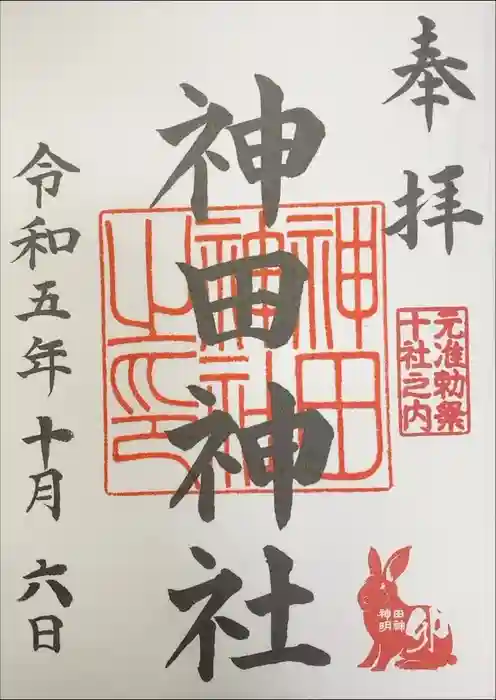 奉拝
元准勅祭
十社之内
神田神社
神田
神社
之印
令和五年十月六日
神田
明神
卯